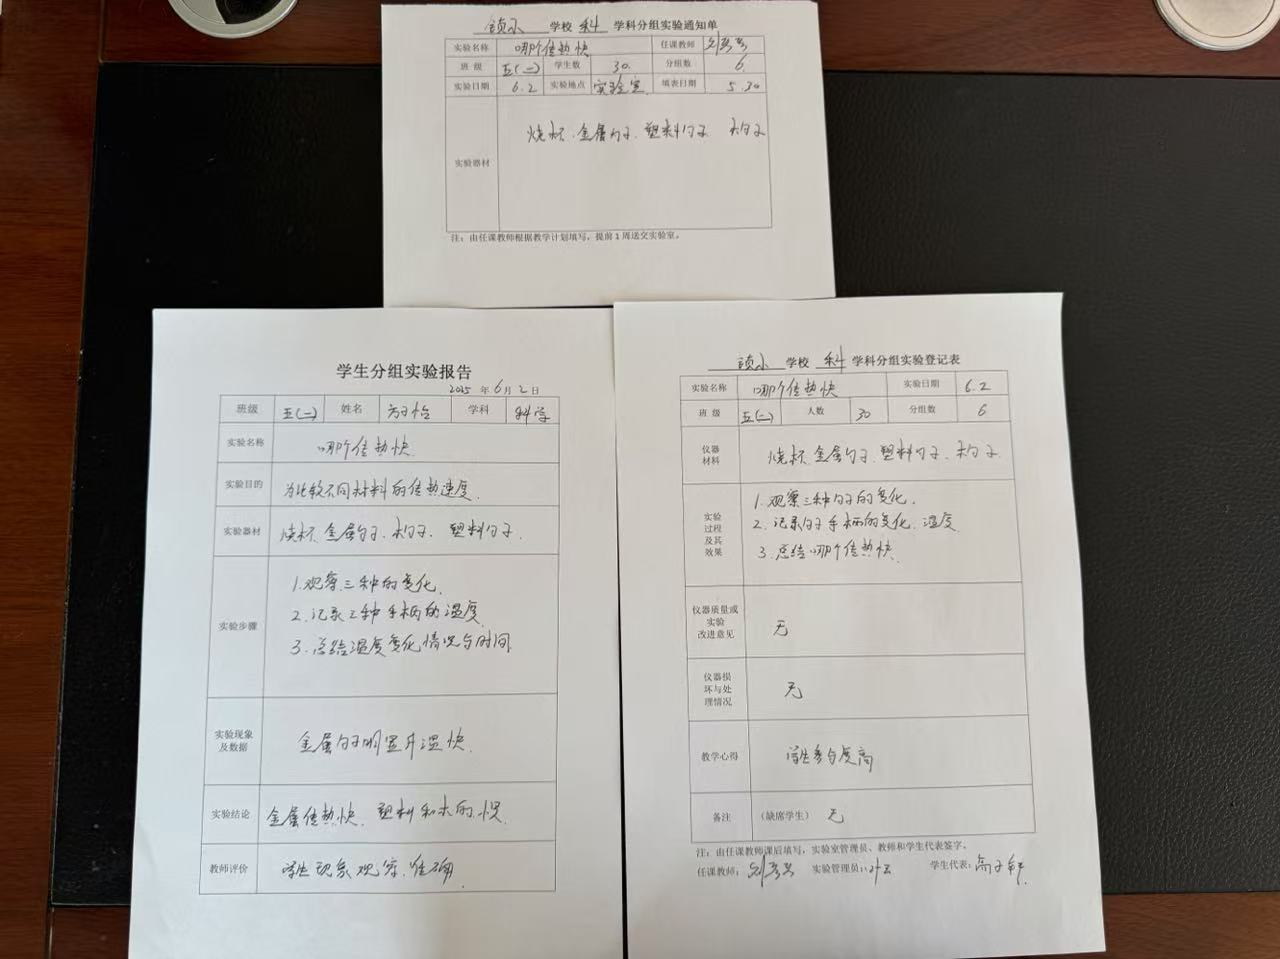 镇小 学校 科 学科分组实验通知单
实验名称 哪个传热快 任课教师
班 级 五(二) 学生数 30. 分组数 6.
实验日期 6.2 实验地点 实验室. 填表日期 5.30
实验器材 烧杯.金属勺子.塑料勺子 木勺子
注：由任课教师根据教学计划填写，提前1周送交实验室。
学生分组实验报告
2025 年 6 月 2 日
班级 五(二) 姓名 学科 科学
实验名称 哪个传热快.
实验目的 为比较不同材料的传热速度.
实验器材 烧杯.金属勺子.木勺子. 塑料勺子.
实验步骤
1.观察三种的变化.
2.记录三种手柄的温度.
3.总结温度变化情况与时间.
实验现象及数据 金属勺子明显升温快.
实验结论 金属传热快、塑料和木的慢.
教师评价 学生现象观察.准确.
镇小 学校 科 学科分组实验登记表
实验名称 哪个传热快 实验日期 6.2
班 级 五(二) 人数 30 分组数 6
仪器材料 烧杯.金属勺子.塑料勺子.木勺子.
实验过程及其效果
1.观察三种勺子的变化.
2.记录勺子手柄的变化.温度.
3.总结哪个传热快.
仪器质量或实验改进意见 无
仪器损坏与处理情况 无
教学心得 学生参与度高
备注 (缺席学生) 无
注：由任课教师课后填写，实验室管理员、教师和学生代表签字。
任课教师： 实验管理员： 学生代表：